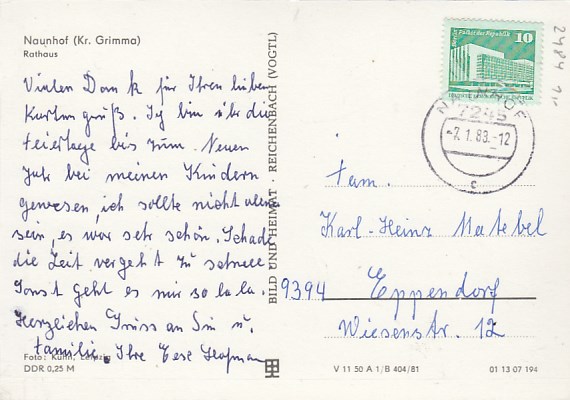 Naunhof (Kr. Grimma)
Rathaus
Vielen Dank für Ihren lieben
Kartengruß. Ich bin über die
Feiertage bis zum Neuen
Jahr bei meinen Kindern
gewesen, ich sollte nicht allein
sein, es war sehr schön. Schade
die Zeit vergeht zu schnell
Sonst geht es mir so la la.
Herzlichen Gruss an Sie u.
Familie. Ihre
Foto: Kühn, Leipzig
DDR 0,25 M
BILD UND HEIMAT · REICHENBACH (VOGTL)
Berlin Palast der Republik 10
NAUNHOF
7245
-7.1.83.-12
c
2484
Fam.
Karl-Heinz Matebel
9394 Eppendorf
Wiesenstr. 12
V 11 50 A 1/B 404/81
01 13 07 194